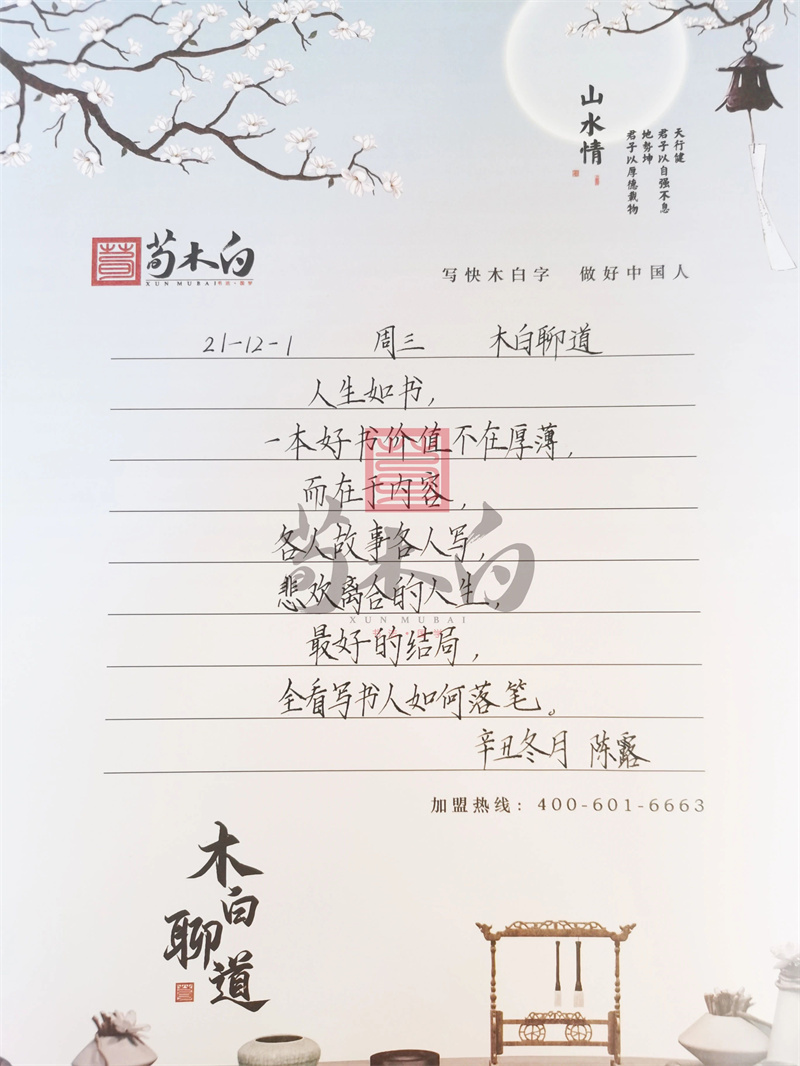 山水情
天行健
君子以自强不息
地势坤
君子以厚德载物
荀木白
XUN MUBAI
写快木白字 做好中国人
21-12-1 周三 木白聊道
人生如书,
一本好书价值不在厚薄,
而在于内容,
各人故事各人写,
悲欢离合的人生,
最好的结局,
全看写书人如何落笔。
辛丑冬月 陈露
荀木白
XUN MUBAI
加盟热线: 400-601-6663
木白聊道